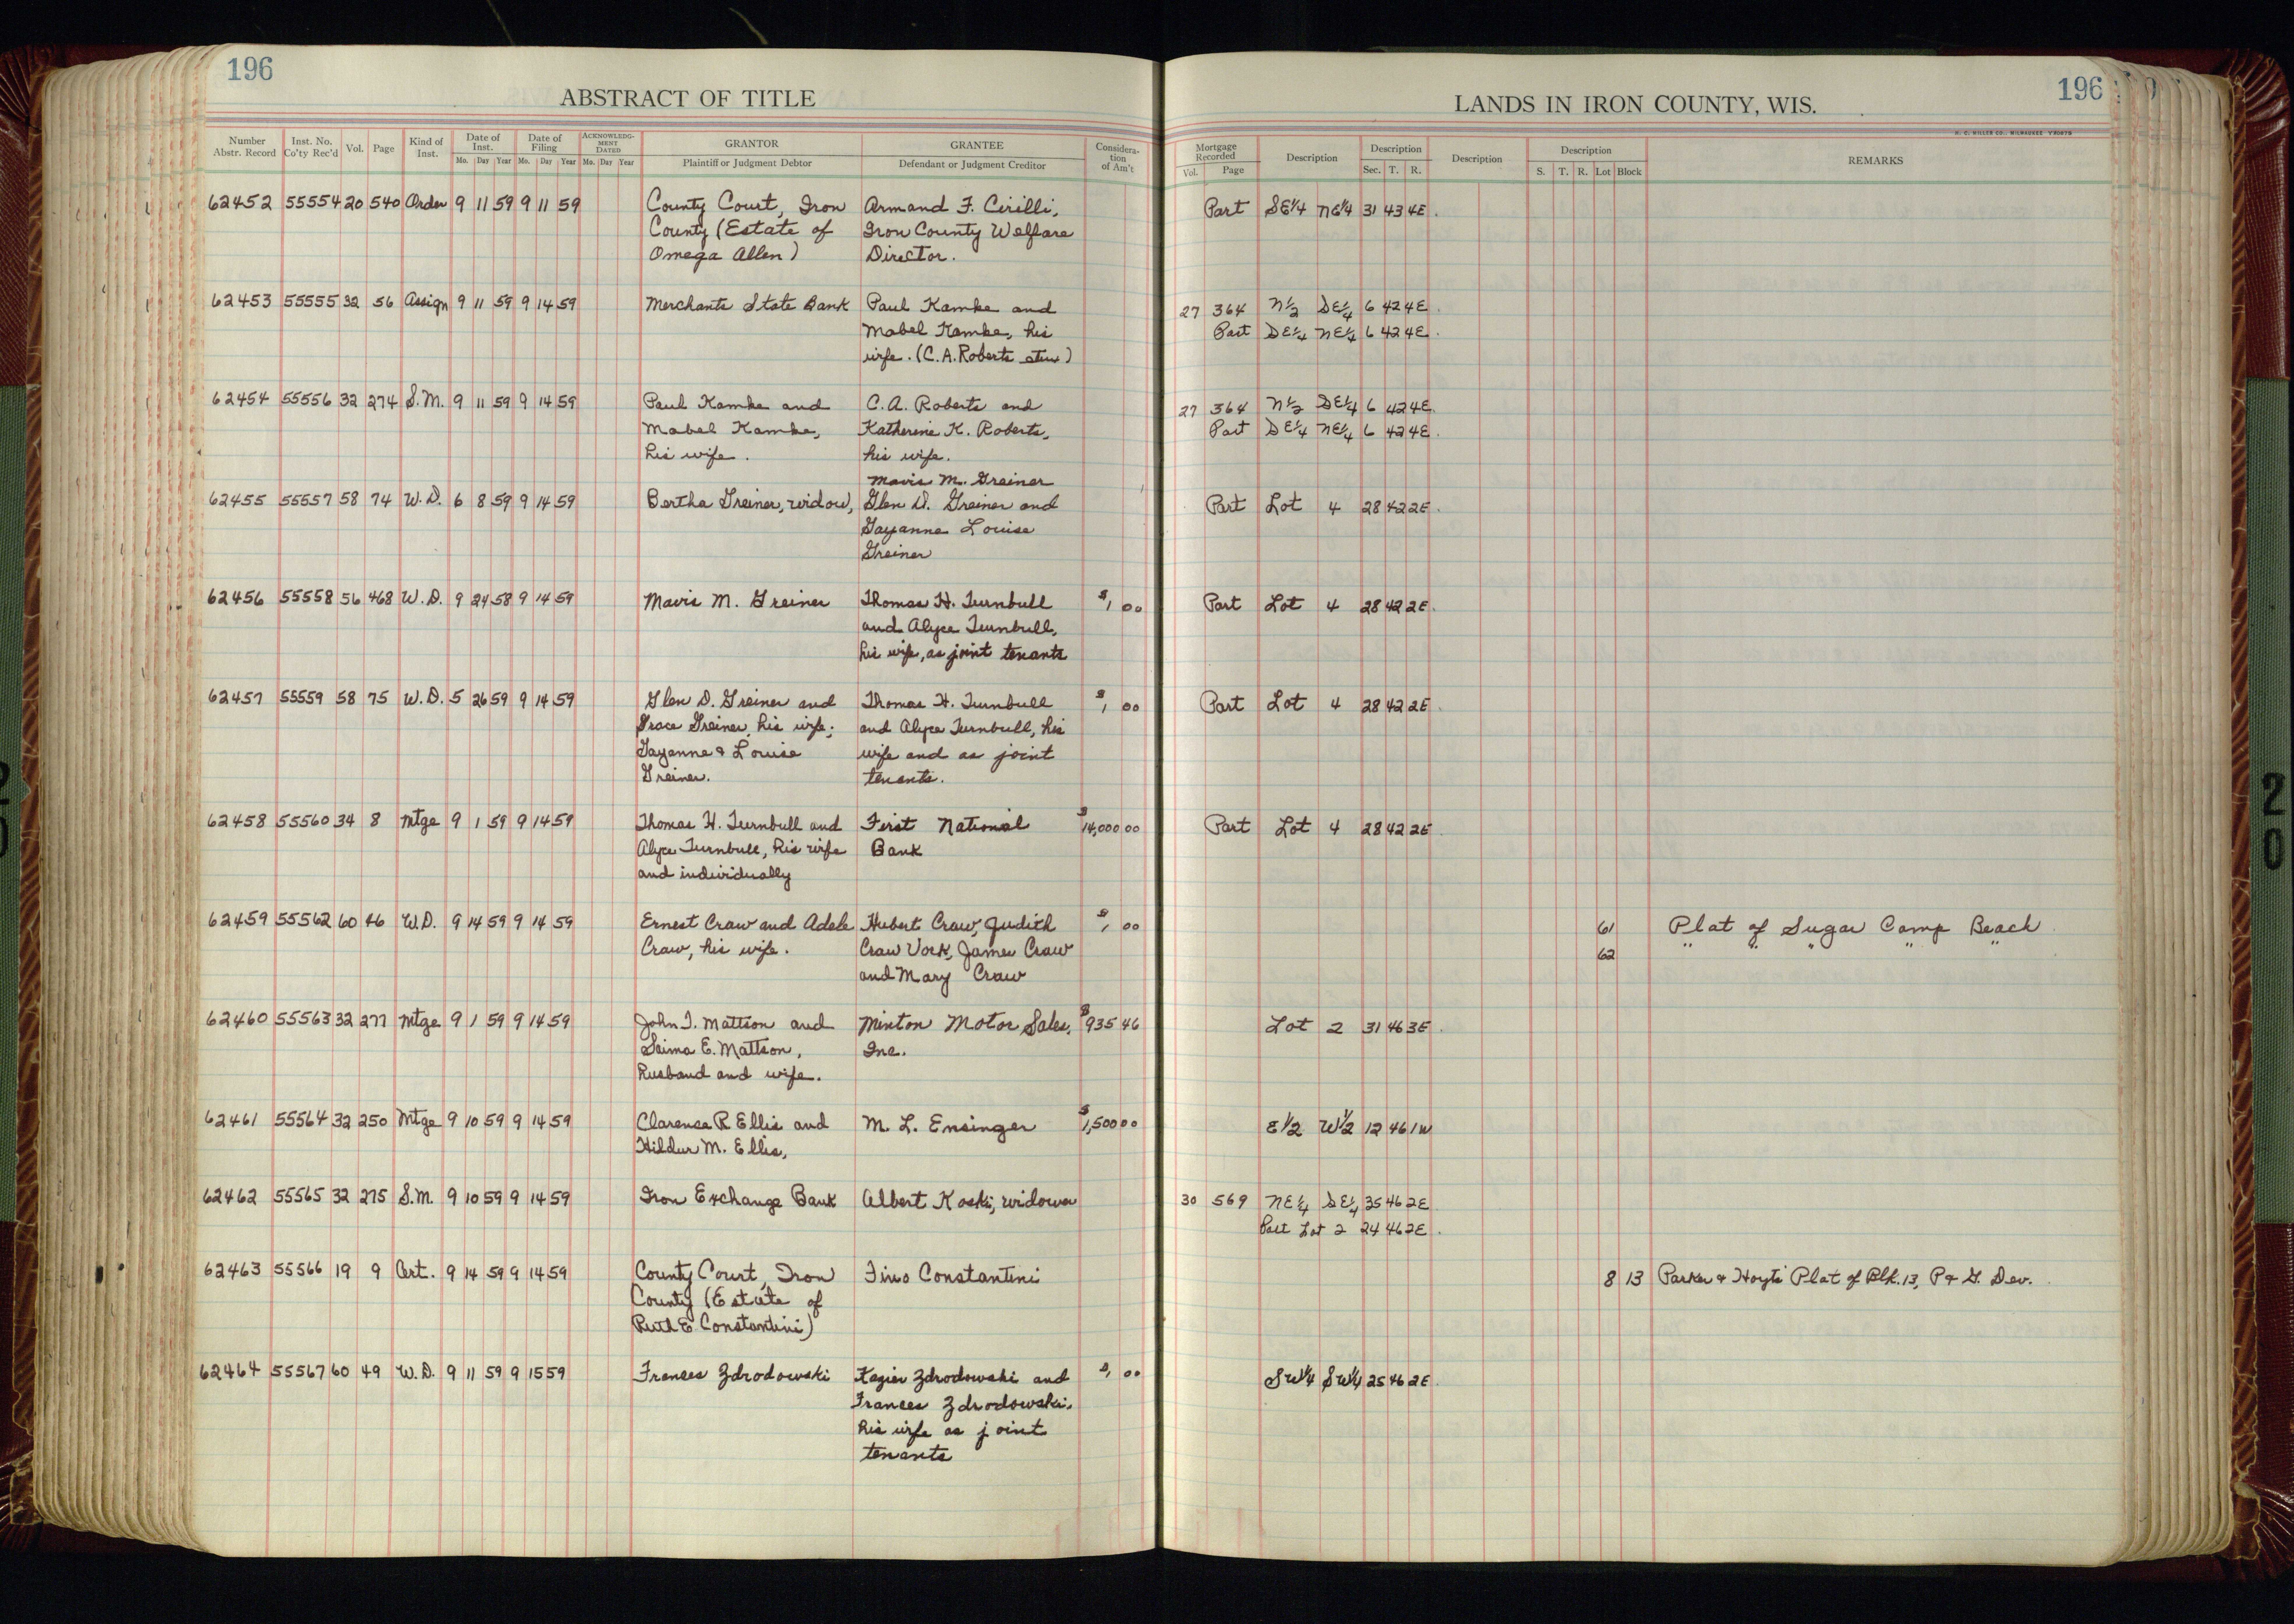 196
ABSTRACT OF TITLE
Number Abstr. Record | Inst. No. Co'ty Rec'd | Vol. | Page | Kind of Inst. | Date of Inst. Mo. Day Year | Date of Filing Mo. Day Year | ACKNOWLEDG-MENT DATED Mo. Day Year | GRANTOR Plaintiff or Judgment Debtor | GRANTEE Defendant or Judgment Creditor | Considera-tion of Am't
62452 55554 20 540 Order 9 11 59 9 11 59 County Court, Iron Armand F. Cirilli,
County (Estate of Iron County Welfare
Omega Allen) Director.
62453 55555 32 56 Assign 9 11 59 9 14 59 Merchants State Bank Paul Kamke and
Mabel Kamke, his
wife. (C.A. Roberts etux)
62454 55556 32 274 S.M. 9 11 59 9 14 59 Paul Kamke and C.A. Roberts and
Mabel Kamke, Katherine K. Roberts,
his wife. his wife.
Mavis M. Greiner
62455 55557 58 74 W.D. 6 8 59 9 14 59 Bertha Greiner, widow, Glen D. Greiner and
Gayanne Louise
Greiner
62456 55558 56 468 W.D. 9 24 58 9 14 59 Mavis M. Greiner Thomas H. Turnbull $1 00
and Alyce Turnbull,
his wife, as joint tenants
62457 55559 58 75 W.D. 5 26 59 9 14 59 Glen D. Greiner and Thomas H. Turnbull $1 00
Grace Greiner, his wife; and Alyce Turnbull, his
Gayanne & Louise wife and as joint
Greiner. tenants.
62458 55560 34 8 Mtge 9 1 59 9 14 59 Thomas H. Turnbull and First National $14,000 00
Alyce Turnbull, his wife Bank
and individually
62459 55562 60 46 W.D. 9 14 59 9 14 59 Ernest Craw and Adele Hubert Craw, Judith $1 00
Craw, his wife. Craw Vork, James Craw
and Mary Craw
62460 55563 32 277 Mtge 9 1 59 9 14 59 John T. Mattson and Minton Motor Sales, $935 46
Saima E. Mattson, Inc.
husband and wife.
62461 55564 32 250 Mtge 9 10 59 9 14 59 Clarence R Ellis and M. L. Ensinger $1,500 00
Hildur M. Ellis,
62462 55565 32 275 S.M. 9 10 59 9 14 59 Iron Exchange Bank Albert Koski, widower
62463 55566 19 9 Cert. 9 14 59 9 14 59 County Court, Iron Constantini
County (Estate of
Ruth E Constantini)
62464 55567 60 49 W.D. 9 11 59 9 15 59 Frances Zdrodowski Kazier Zdrodowski and $1 00
Frances Zdrodowski,
his wife as joint
tenants
196
LANDS IN IRON COUNTY, WIS.
H. C. MILLER CO., MILWAUKEE
Mortgage Recorded Vol. Page | Description | Description Sec. T. R. | Description | Description S. T. R. Lot Block | REMARKS
Part SE1/4 NE1/4 31 43 4E.
27 364 N1/2 SE1/4 6 42 4E.
Part SE1/4 NE1/4 6 42 4E.
27 364 N1/2 SE1/4 6 42 4E.
Part SE1/4 NE1/4 6 42 4E.
Part Lot 4 28 42 2E.
Part Lot 4 28 42 2E.
Part Lot 4 28 42 2E.
Part Lot 4 28 42 2E.
61 Plat of Sugar Camp Beach
62 " " " " "
Lot 2 31 46 3E.
E1/2 W1/2 12 46 1W
30 569 NE1/4 SE1/4 35 46 2E
Part Lot 2 24 46 2E.
8 13 Parker & Hoyts' Plat of Blk. 13, P & G. Dev.
SW1/4 SW1/4 25 46 2E.
20